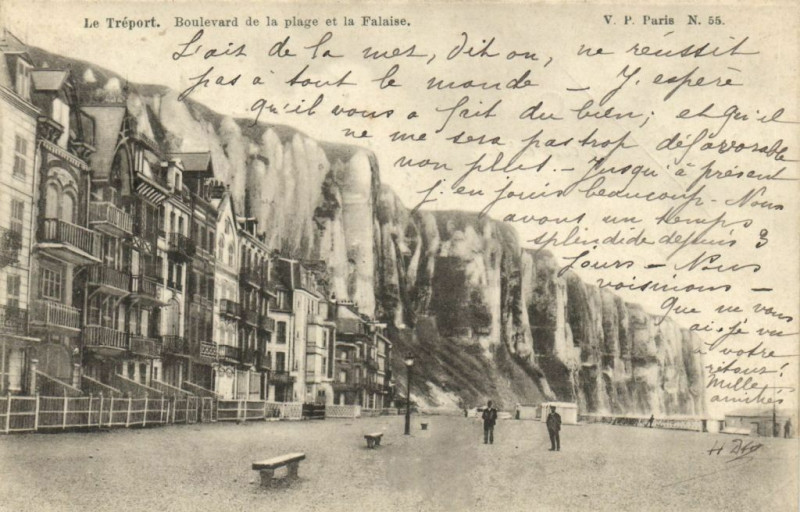 Le Tréport. Boulevard de la plage et la Falaise.
V. P. Paris N. 55.
L'air de la mer, dit on, ne réussit
pas à tout le monde - J'espère
qu'il vous a fait du bien; et qu'il
ne me sera pas trop défavorable
non plus. - Jusqu'à présent
j'en jouis beaucoup - Nous
avons un temps
splendide depuis 3
jours - Nous
voisinons -
Que ne vous
ai-je vu
à votre
retour!
Mille
amitiés